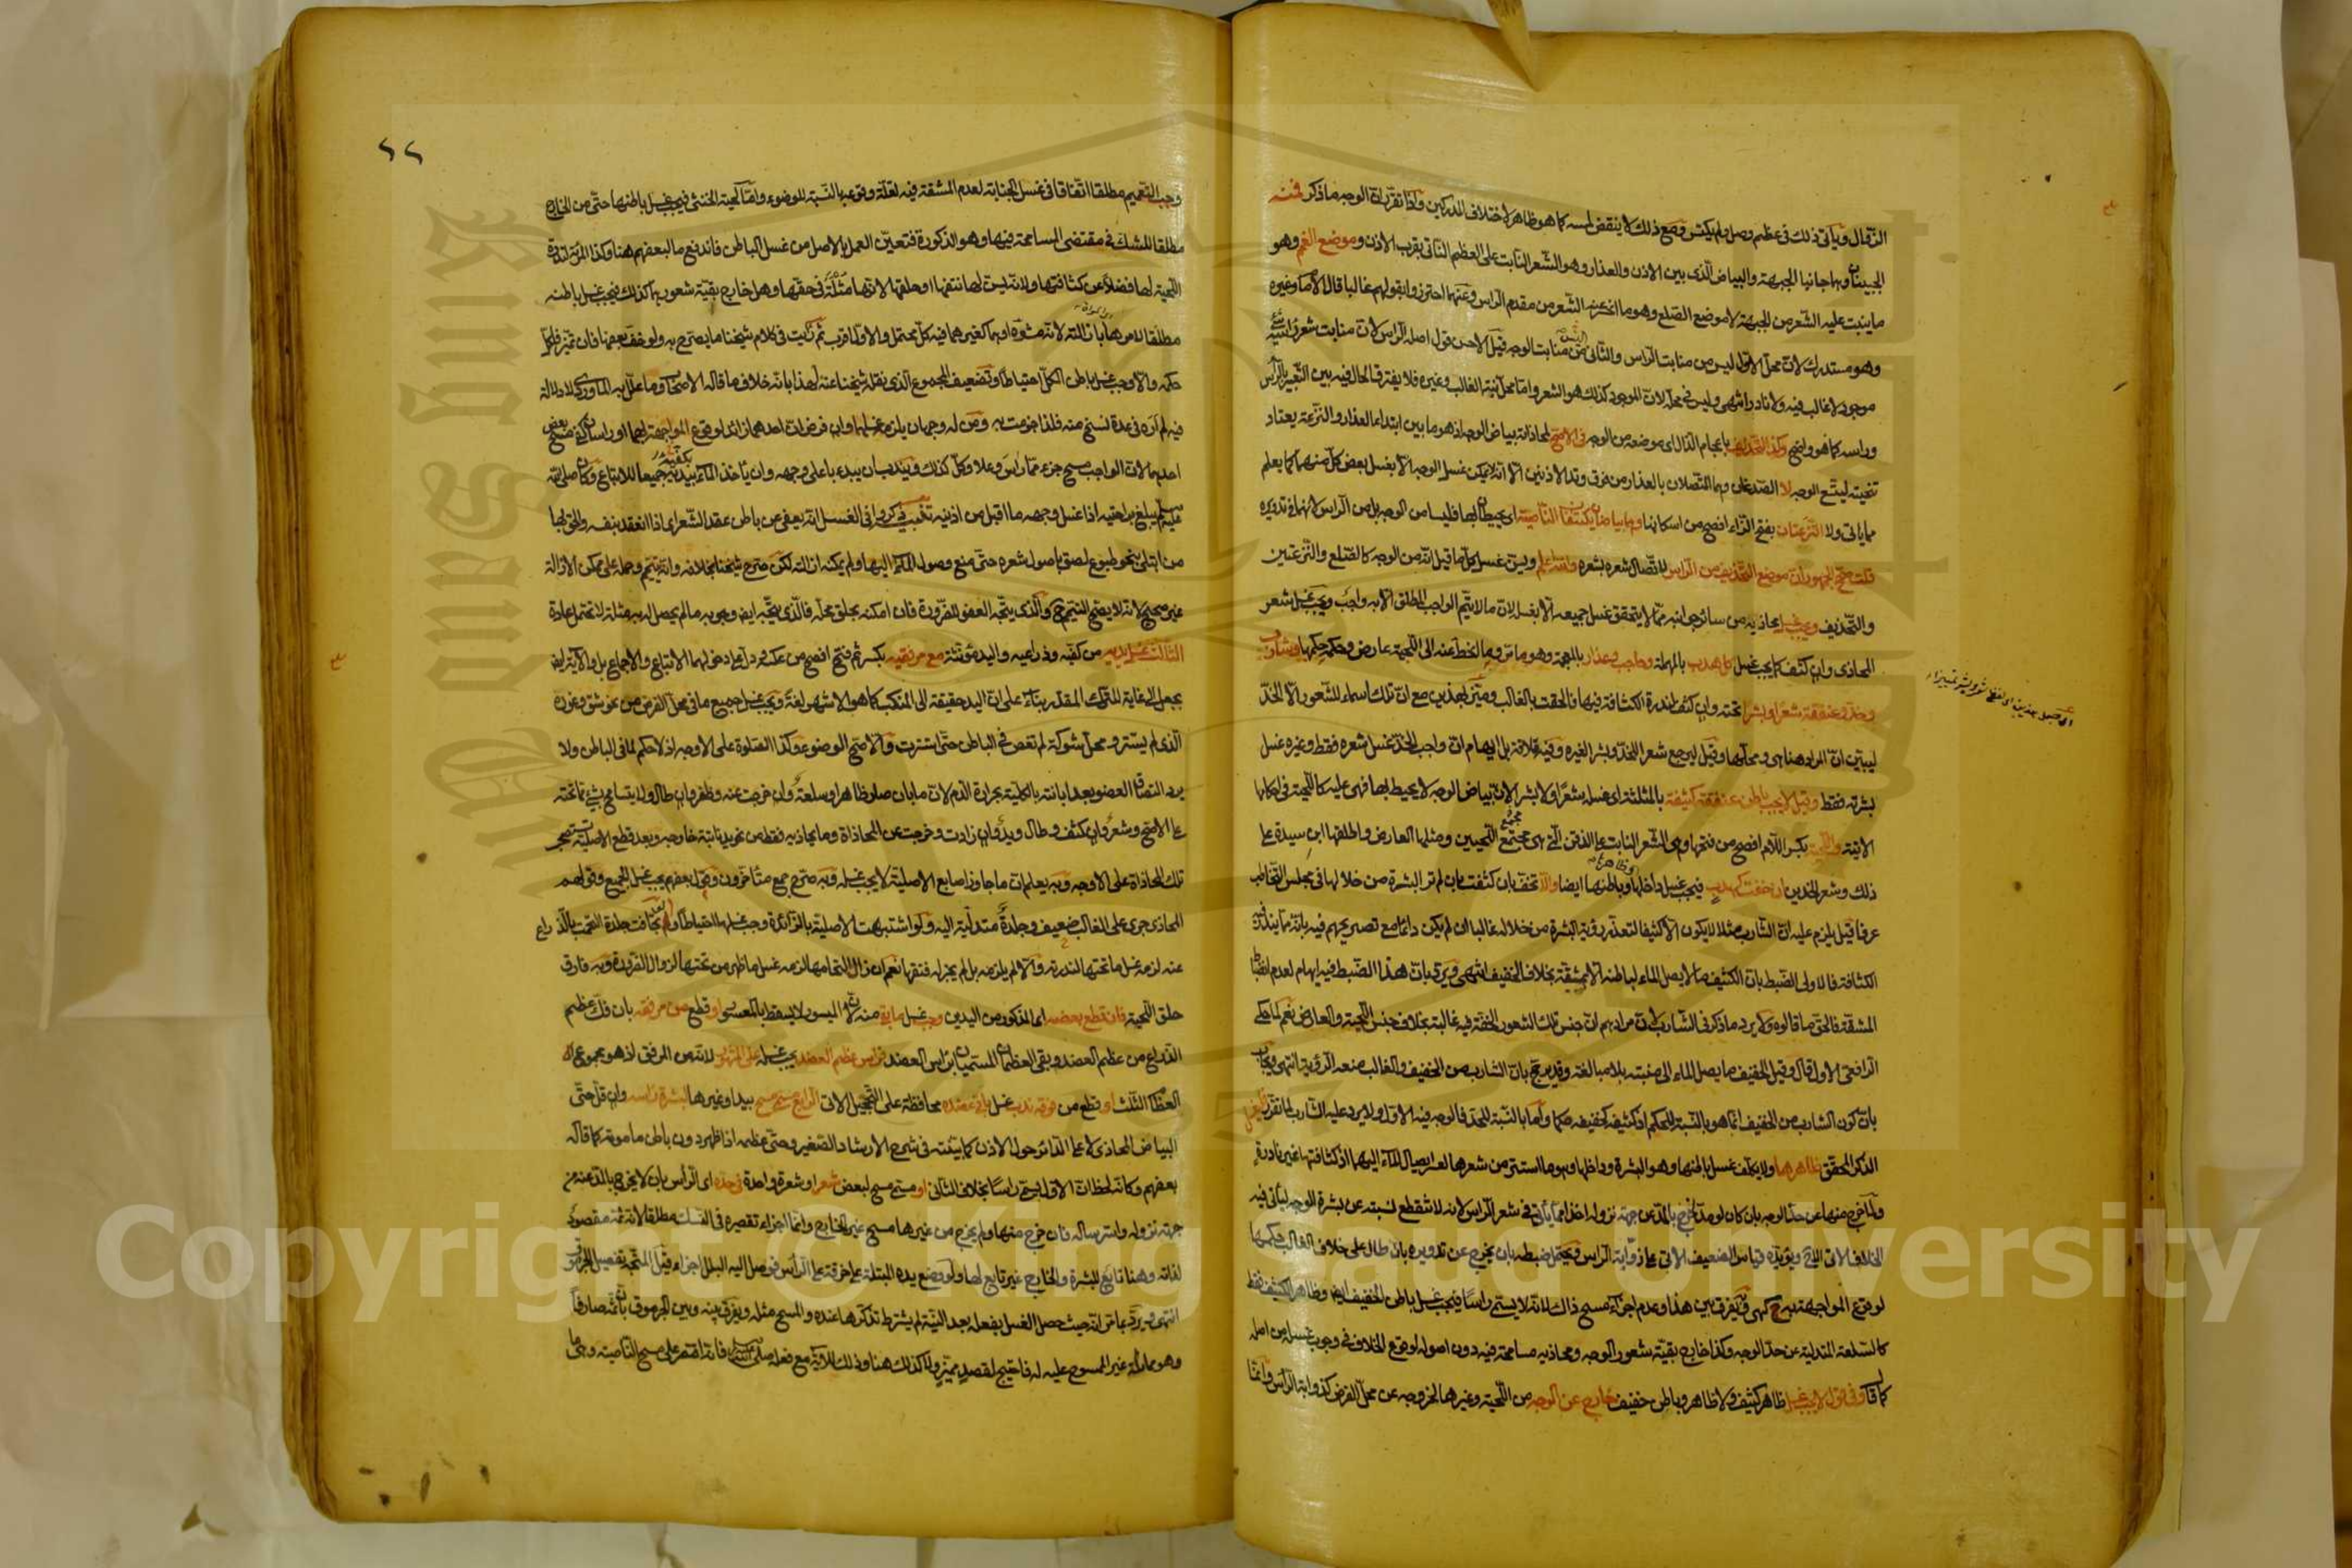 الزوال ويأتي ذلك في عظم وصل ولم يكتس ومع ذلك لا ينقض لمسه كما هو ظاهر لاختلاف المدركين واذا تقرر ان الوجه ما ذكر فمنه
الجبينان وهما جانبا الجبهة والبياض الذي بين الاذن والعذار وهو الشعر النابت على العظم الناتي بقرب الاذن وموضع الغمم وهو
ما ينبت عليه الشعر من الجبهة لا موضع الصلع وهو ما انحسر عنه الشعر من مقدم الراس وعنهما احترز وا بقولهم غالبا قال الامام وغيره
وهو مستدرك لان محل الاول ليس من منابت الراس والثاني من منابت الوجه قيل الاحسن قول اصله الراس لان منابت شعر راسه شيء
موجود لا غالب فيه ولا نادر انتهى وليس في محله لان الموجود كذلك هو الشعر واما محل نبته الغالب وغيره فلا يفترق الحال فيه بين التعبير بالراس
وراسه كما هو واضح وكذا التحذيف باعجام الذال اي موضعه من الوجه في الاصح لمحاذاته بياض الوجه اذ هو ما بين ابتداء العذار والنزعة يعتاد
تنحيته ليتسع الوجه لا الصدغان وهما المتصلان بالعذار من فوق وتد الاذنين الا انه لا يمكن غسل الوجه الا بغسل بعض كل منهما كما يعلم
مما ياتي ولا النزعتان بفتح الزاء افصح من اسكانها وهما بياضان يكتنفان الناصية اي يحيطان بها فليسا من الوجه بل من الراس لانهما في تدويره
قلت صحح الجمهور ان موضع التحذيف من الراس لاتصال شعره بشعره والله اعلم ويسن غسل كل ما قيل انه من الوجه كالصلع والنزعتين
والتحذيف ويجب غسل محاذيه من سائر جوانبه مما لا يتحقق غسل جميعه الا بغسله لان ما لا يتم الواجب المطلق الا به واجب ويجب غسل شعر
المحاذي وان كثف كما يجب غسل كل هدب بالمهملة وحاجب وعذار بالمعجمة وهو ما مر وما انحط عنه الى اللحية عارض وحكمه حكمها وشارب
وخد وعنفقة شعرا وبشرا تحته وان كثف لندرة الكثافة فيها فالحقت بالغالب وميز لهذين مع ان تلك اسماء للشعور الا الخد
ليبين ان المراد هنا هي ومحالها وقيل ليرجع شعر الخد وبشر لغيره وفيه قلاقة بل ايهام ان واجب الخد غسل شعره فقط وغيره غسل
بشرته فقط وقيل لا يجب باطن عنفقة كثيفة بالمثلثة اي غسله بشعرا ولا بشرا لان بياض الوجه لا يحيط بها فهي عليه كاللحية في احكامها
الاتية واللحية بكسر اللام افصح من فتحها وهي الشعر النابت على الذقن التي هي مجتمع اللحيين ومثلها العارض واطلقها ابن سيدة على
ذلك وشعر الخدين ان خفت كهدب فيجب غسل داخلها وباطنها ايضا والا تخف بان كثفت بان لم تر البشرة من خلالها في مجلس التخاطب
عرفا قيل يلزم عليه ان الشارب مثلا لا يكون الا كثيفا لتعذر رؤية البشرة من خلاله غالبا ان لم يكن دائما مع تصريحهم فيه بانه مما يندر فيه
الكثافة فالاولى الضبط بان الكثيف ما لا يصل الماء لباطنه الا بمشقة بخلاف الخفيف انتهى ويرد بان هذا الضبط فيه ايهام لعدم انضباط
المشقة فالحق ما قالوه ولا يرد ما ذكر في الشارب لان مرادهم ان جنس تلك الشعور الخفة فيه غالبة بخلاف جنس اللحية والعارض نعم لما حكى
الرافعي الاول قال وقيل الخفيف ما يصل الماء الى منبته بلا مبالغة وقد يرجح بان الشارب من الخفيف والغالب منعه الرؤية انتهى ويجاب
بان كون الشارب من الخفيف انما هو بالنسبة للحكم اذ كثيفه كخفيفه حكما واما بالنسبة للحد فالوجه فيه الاول ولا يرد عليه الشارب لما تقرر فليغسل
الذكر المحقق ظاهرها ولا يكلف غسل باطنها وهو البشرة وداخلها وهو ما استتر من شعرها لعسر ايصال الماء اليهما اذ كثافتها غير نادرة
وما خرج منها عن حد الوجه بان كان لو مد خرج بالمد عن جهة نزوله اخذا مما ياتي في شعر الراس لانه لا تنقطع نسبته عن بشرة الوجه لياتي فيه
الخلاف الاتي الذي ويؤيده قياس الضعيف الاتي على ذؤابة الراس ويحتمل ضبطه بان يخرج عن تدويره بان طال على خلاف الغالب فحكمها
لوقوع المواجهة به كهي وقد يفرق بين هذا وعدم اجزاء مسح ذاك لانه لا يسمى راسا فيجب غسل باطن الخفيف ايضا وظاهر الكثيف فقط
كالسلعة المتدلية عن حد الوجه وكذا خارج بقية شعور الوجه ومحاذيه مسامحة فيه دون اصوله لوقوع الخلاف في وجوب غسله من اصله
كما قال وفي قول لا يجب غسل ظاهر كثيف ولا ظاهر وباطن خفيف خارج عن الوجه من اللحية وغيرها لخروجه عن محل الفرض كذوابة الراس وانما
وجب التعميم مطلقا اتفاقا في غسل الجنابة لعدم المشقة فيه لقلة وقوعه بالنسبة للوضوء واما لحية الخنثى فيجب غسل باطنها حتى من الخارج
مطلقا للشك في مقتضى المسامحة فيها وهو الذكورة فتعين العمل بالاصل من غسل الباطن فاندفع ما لبعضهم هنا وكذا المراة لندرة
اللحية لها فضلا عن كثافتها ولانه يسن لها نتفها او حلقها لانها مثلة في حقها وهل خارج بقية شعور هما كذلك فيجب غسل باطنه
مطلقا لامرها بازالته لانه مشوه او هما كغيرهما فيه كل محتمل والاول اقرب ثم رايت في كلام شيخنا ما يصرح به ولو خف بعضها فان تميز فلكل
حكمه والا وجب غسل باطن الكل احتياطا وتضعيف المجموع الذي نقله شيخنا عنه لهذا بانه خلاف ما قاله الاصحاب وما علل به الماوردي لا دلالة
فيه لم اره في عدة نسخ منه فلذا جزمت به ومن له وجهان يلزمه غسلهما وان فرض ان احدهما زائد لوقوع المواجهة بهما او راسان كفى مسح بعض
احدهما لان الواجب مسح جزء مما راس وعلا وكل كذلك ويندب ان يبدء باعلى وجهه وان ياخذ الماء بيديه جميعا للاتباع وكان صلى الله
عليه وسلم يبلغ براحتيه اذا غسل وجهه ما اقبل من اذنيه تغيب ذكروا في الغسل انه يعفى عن باطن عقد الشعر اي اذا انعقد بنفسه والحق بها
من ابتلى بنحو طبوع لصق باصول شعره حتى منع وصول الماء اليها ولم يمكنه ازالته لكن صرح شيخنا بخلافه وانه يتيمم وحمله على ممكن الازالة
غير صحيح لانه لا يصح التيمم ح والذي يتجه العفو للضرورة فان امكنه بحلق محله فالذي يتجه ايضا وجوبه ما لم يحصل له به مثلة لا تحتمل عادة
الثالث غسل يديه من كفيه وذراعيه واليد مؤنثة مع مرفقيه بكسر ثم فتح افصح من عكسه ودل على دخولهما الاتباع والاجماع بل والاية ايضا
بجعل الى غاية للترك المقدر بناء على ان اليد حقيقة الى المنكب كما هو الاشهر لغة ويجب غسل جميع ما في محل الفرض من نحو شق وغوره
الذي لم يستتر ومحل شوكة لم تغص في الباطن حتى استترت والا صح الوضوء وكذا الصلوة على الاوجه اذ لا حكم لما في الباطن ولا
يرد التصاق العضو بعد ابانته بالكلية بحرارة الدم لان ما بان صار ظاهرا وسلعة وان خرجت عنه وظفر وان طال ولا يتسامح بشيء مما تحته
على الاصح وشعر وان كثف وطال ويد وان زادت وخرجت عن المحاذاة وما يحاذيه فقط من نحو يد نابتة خارجه وبعد قطع الاصلية تستصحب
تلك المحاذاة على الاوجه وبه يعلم ان ما جاوز اصابع الاصلية لا يجب غسله وبه صرح جمع متاخرون وقول بعضهم يجب غسل الجميع وقولهم
المحاذي جرى على الغالب ضعيف وجلدة متدلية اليه ولو اشتبهت الاصلية بالزائدة وجب غسلهما احتياطا ولو تجافت جلدة التحمت بالذراع
عنه لزمه غسل ما تحتها لندرته والا لم يلزمه بل لم يجز له فتقها نعم ان زال التحامها لزمه غسل ما ظهر من تحتها لزوال الضرورة وبه فارق
حلق اللحية فان قطع بعضه اي المذكور من اليدين وجب غسل ما بقي منه لان الميسور لا يسقط بالمعسور او قطع من مرفقه بان فك عظم
الذراع من عظم العضد وبقي العظمان المسميان براس العضد فراس عظم العضد يجب غسله على المشهور لانه من المرفق اذ هو مجموع
العظام الثلث او قطع من فوقه ندب غسل باقي عضده محافظة على التحجيل الاتي الرابع مسمى مسح بيد او غيرها لبشرة راسه وان قل حتى
البياض المحاذي لا على الدائر حول الاذن كما بينته في شرح الارشاد الصغير وحتى عظمه اذا ظهر دون باطن مامومة كما قاله
بعضهم وكانه لحظ ان الاول يسمى راسا بخلاف الثاني او مسمى مسح لبعض شعر او شعرة واحدة في حده اي الراس بان لا يخرج بالمد عنه من
جهة نزوله واسترساله فان خرج منها ولم يخرج من غيرها مسح غير الخارج وانما اجزاء تقصيره في النسك مطلقا لانه ثمة مقصود
لذاته وهنا تابع للبشرة والخارج غير تابع لها ولو وضع يده المبتلة على خرقة على الراس فوصل اليه البلل اجزاء قيل المتجه تفصيل الجرموق
انتهى ويرد بما مر انه حيث حصل الغسل بفعله بعد النية لم يشترط تذكرها عنده والمسح مثله ويفرق بينه وبين الجرموق بان ثم صارفا
وهو مماثلة غير الممسوح عليه له فاحتيج لقصد مميز ولا كذلك هنا وذلك للاية مع فعله صلى الله عليه وسلم فانه اقتصر على مسح الناصية وهي ما